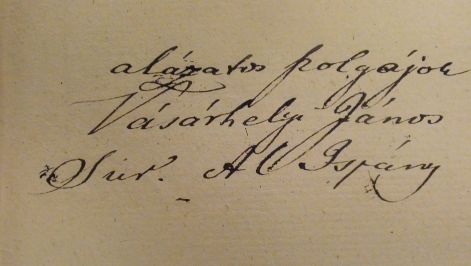 alázatos szolgájok
Vásárhelyi János
Sur. Al Ispány